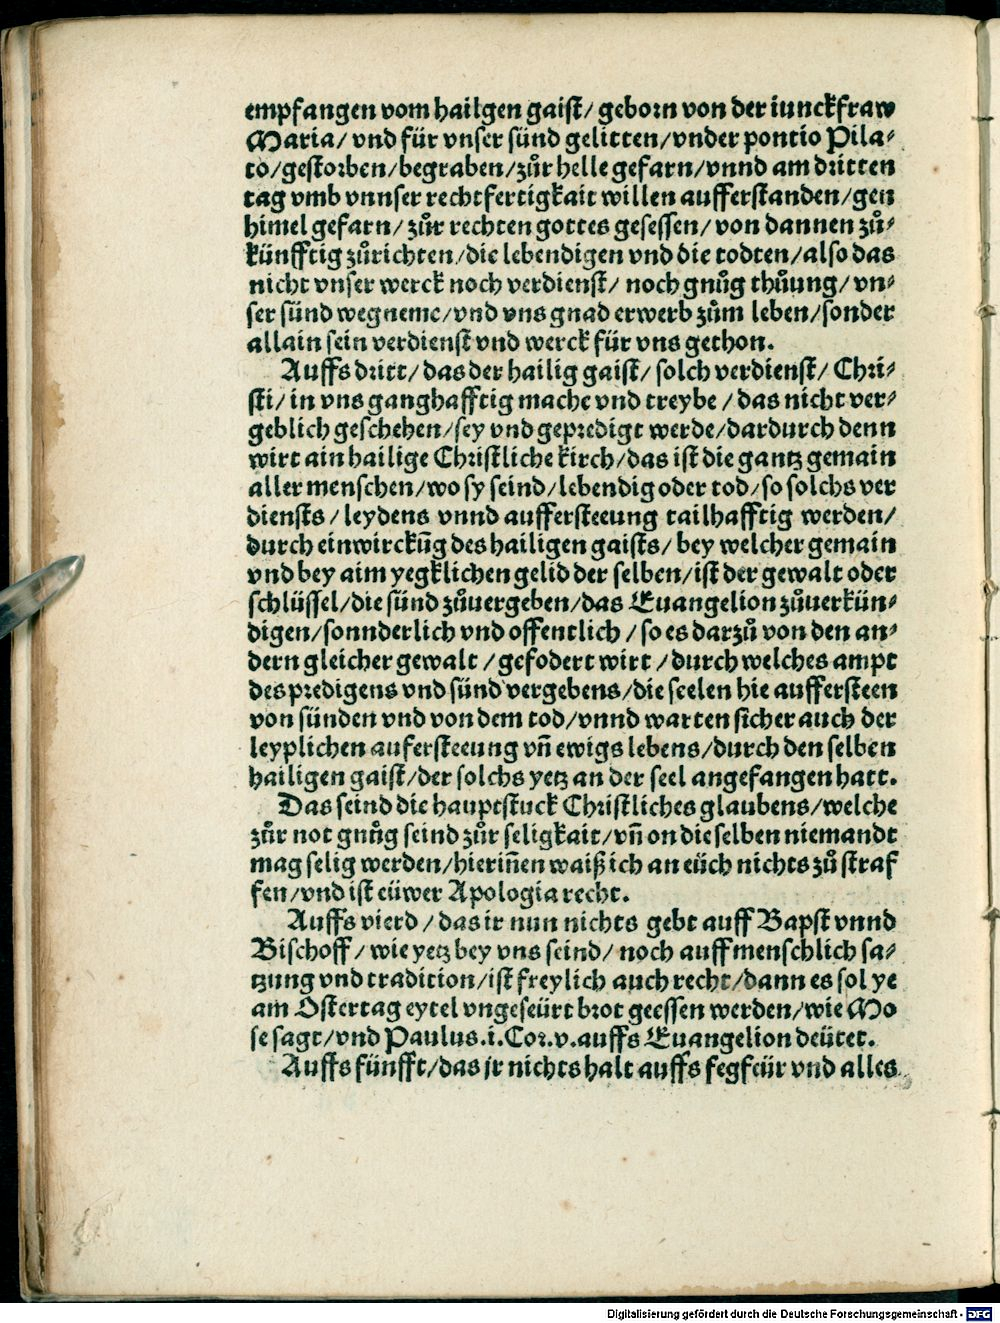 empfangen vom hailgen gaist/ geborn von der iunckfraw
Maria/ vnd für vnser sünd gelitten/vnder pontio Pila⸗
to/gestorben/begraben/zůr helle gefarn/vnnd am dritten
tag vmb vnnser rechtfertigkait willen aufferstanden/gen
himel gefarn/ zůr rechten gottes gesessen/ von dannen zů⸗
künfftig zůrichten/die lebendigen vnd die todten/also das
nicht vnser werck noch verdienst/ noch gnůg thůung/ vn⸗
ser sünd wegneme/vnd vns gnad erwerb zům leben/sonder
allain sein verdienst vnd werck für vns gethon.
Auffs dritt/ das der hailig gaist/ solch verdienst/ Chri⸗
sti/ in vns ganghafftig mache vnd treybe / das nicht ver⸗
geblich geschehen/sey vnd gepredigt werde/dardurch denn
wirt ain hailige Christliche kirch/das ist die gantz gemain
aller menschen/wo sy seind/lebendig oder tod/so solchs ver
diensts / leydens vnnd auffersteeung tailhafftig werden/
durch einwirckūg des hailigen gaists/ bey welcher gemain
vnd bey aim yegklichen gelid der selben/ist der gewalt oder
schlüssel/die sünd zůuergeben/das Euangelion zůuerkün⸗
digen/sonnderlich vnd offentlich / so es darzů von den an⸗
dern gleicher gewalt / gefodert wirt / durch welches ampt
des predigens vnd sünd vergebens/die seelen hie auffersteen
von sünden vnd von dem tod/vnnd warten sicher auch der
leyplichen aufersteeung vn̄ ewigs lebens/durch den selben
hailigen gaist/der solchs yetz an der seel angefangen hatt.
Das seind die hauptstuck Christliches glaubens/welche
zůr not gnůg seind zůr seligkait/vn̄ on die selben niemandt
mag selig werden/hierin̄en waiß ich an eüch nichts zů straf
fen/vnd ist eüwer Apologia recht.
Auffs vierd / das ir nun nichts gebt auff Bapst vnnd
Bischoff / wie yetz bey vns seind/ noch auff menschlich sa⸗
tzung vnd tradition/ist freylich auch recht/dann es sol ye
am Ostertag eytel vngeseürt brot geessen werden/wie Mo
se sagt/vnd Paulus.i.Cor.v.auffs Euangelion deütet.
Auffs fünfft/das ir nichts halt auffs fegfeür vnd alles
Digitalisierung gefördert durch die Deutsche Forschungsgemeinschaft - DFG